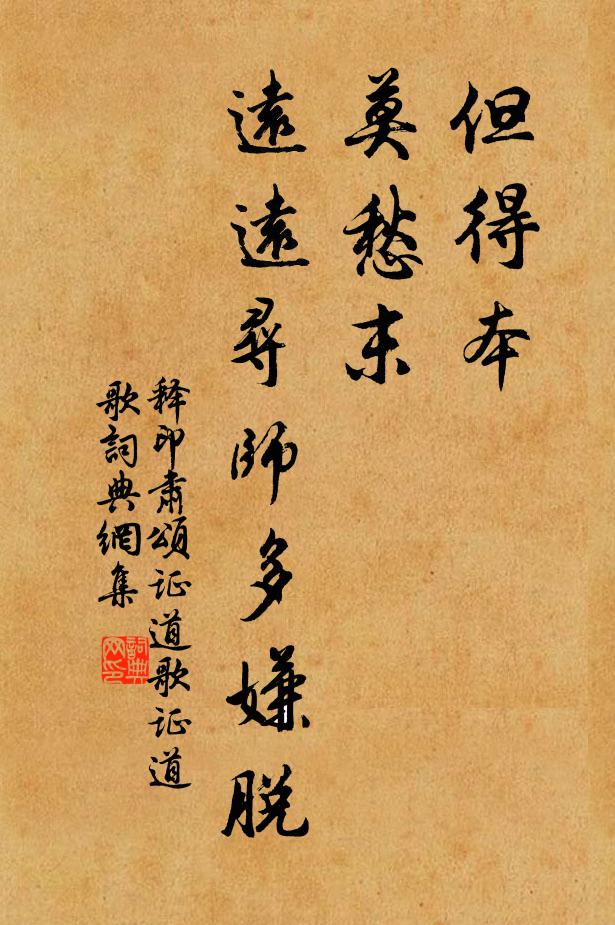 但得本
莫愁末
遠遠尋師多嫌脫
释印肅頌证道歌证道
歌詞典網集
詞典
网印